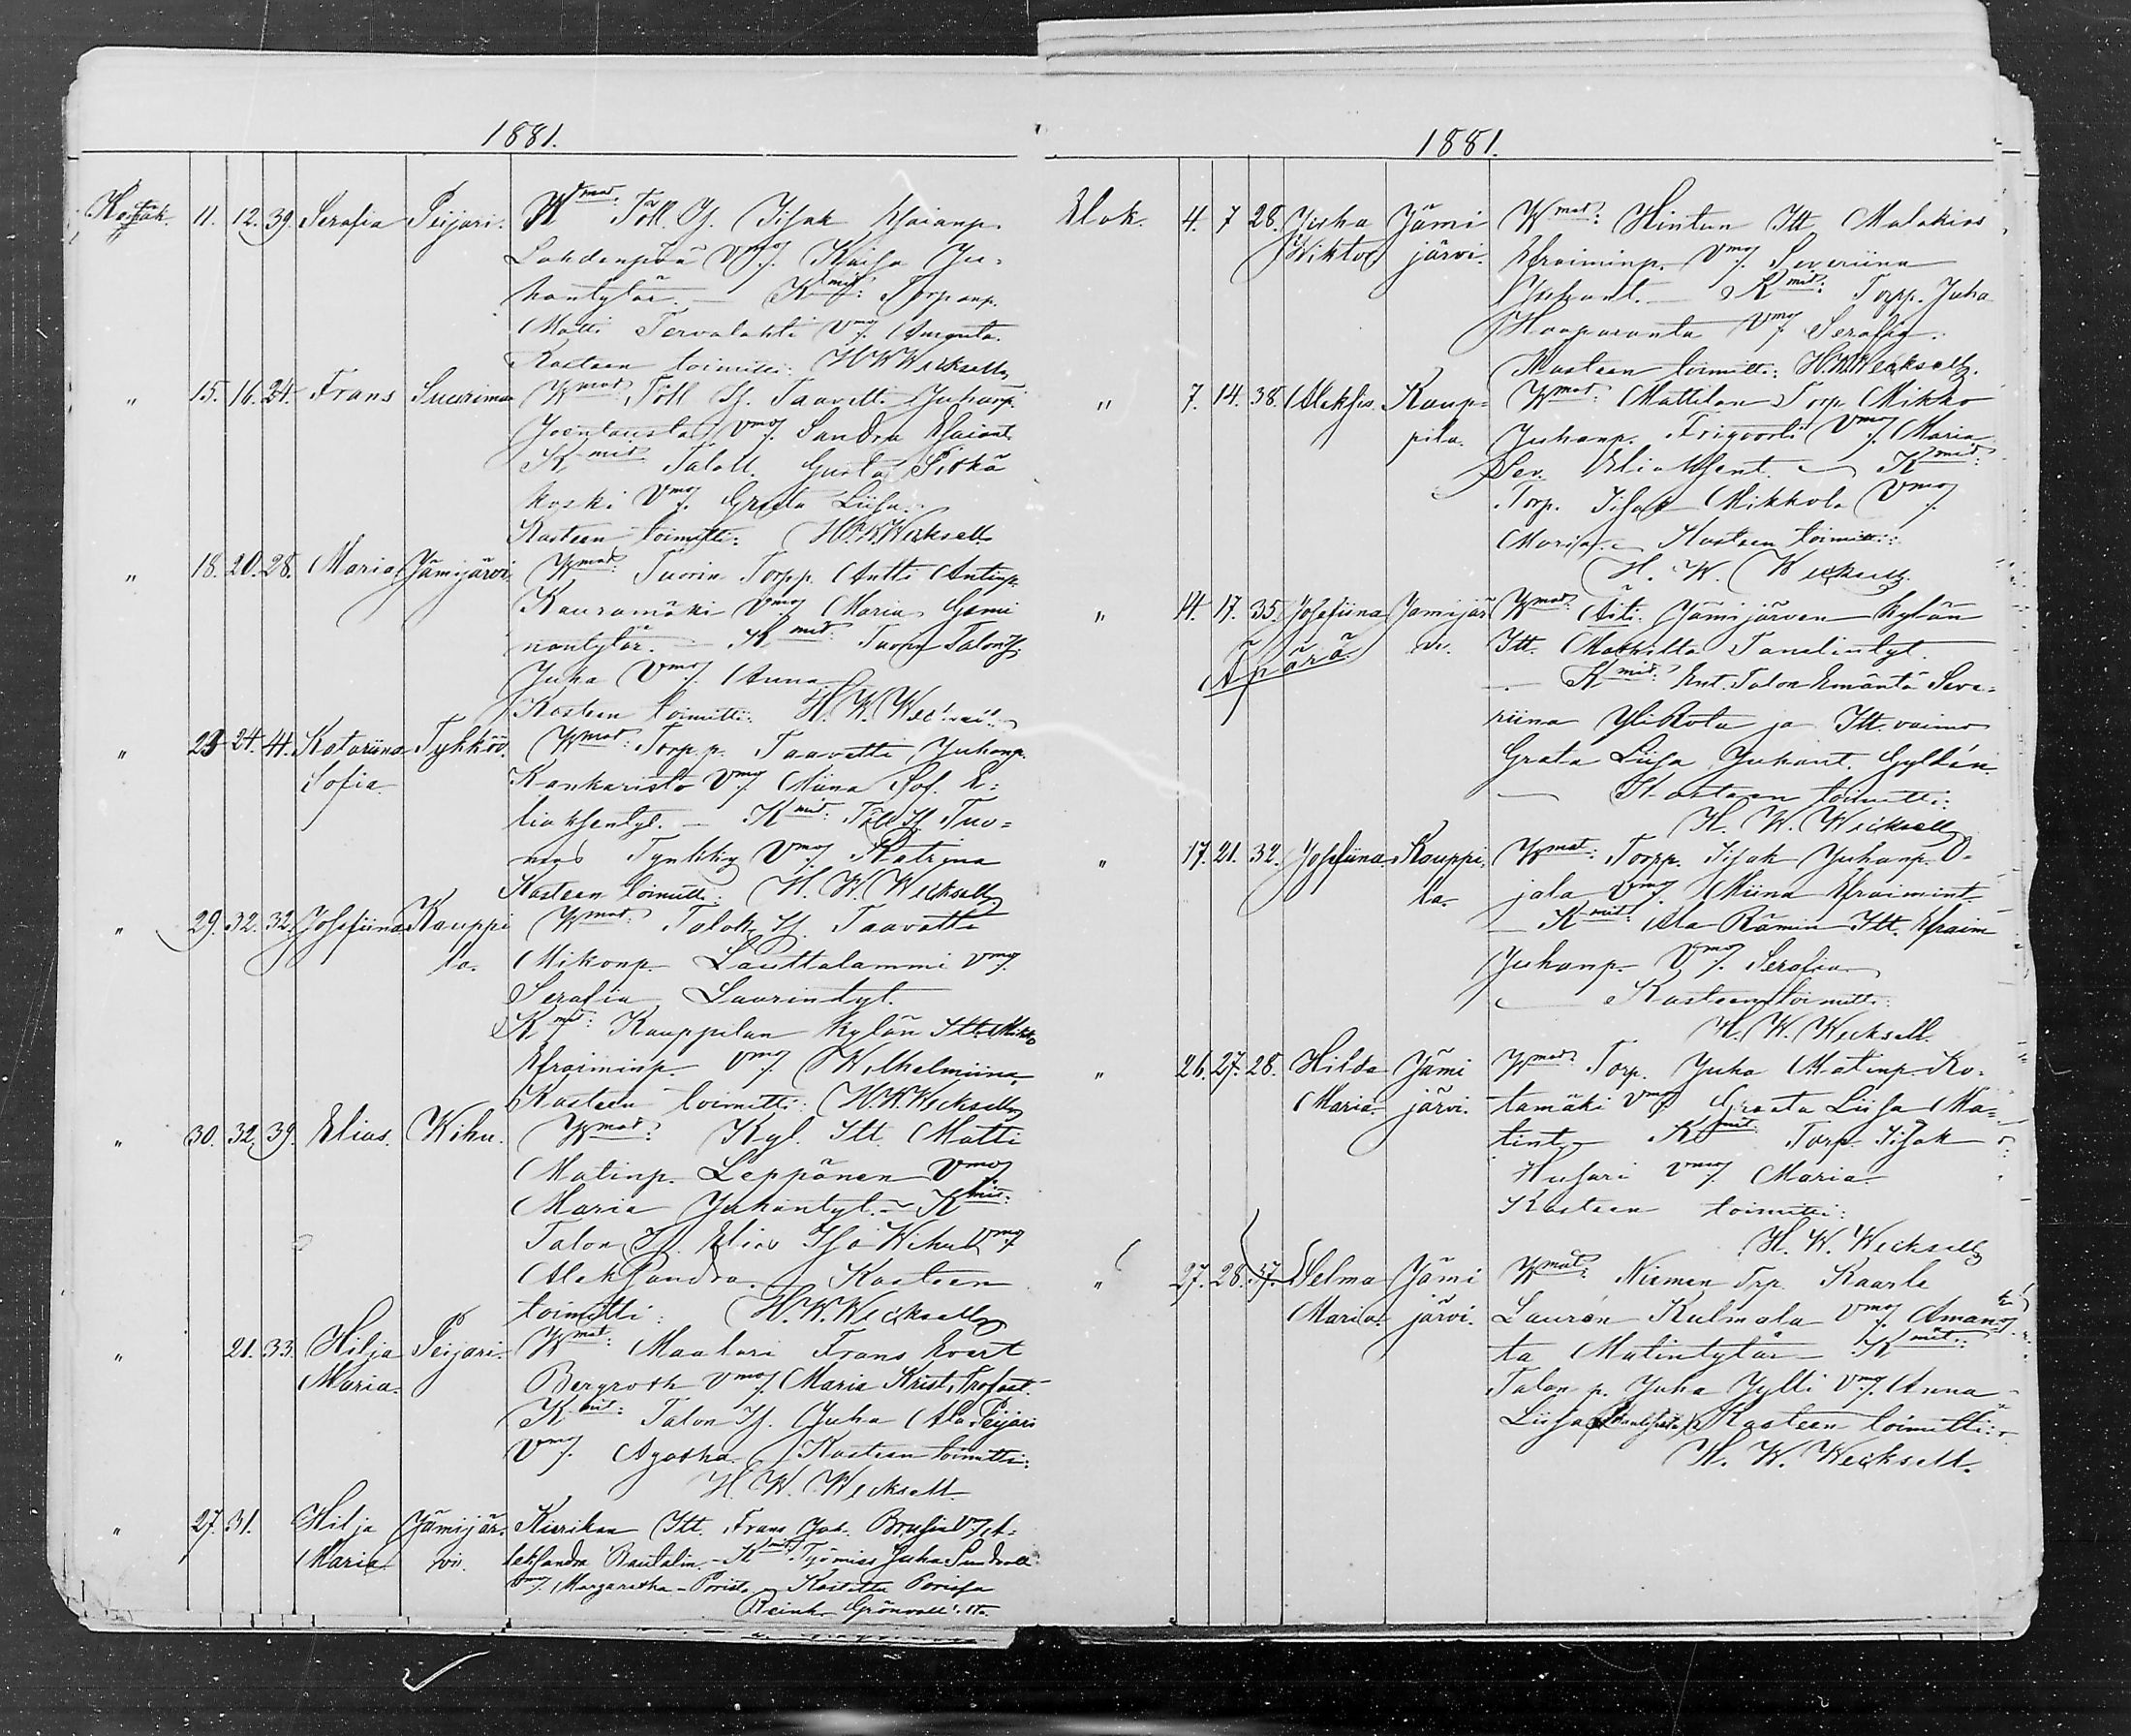 1881.
Heinäk. 11. 12. 39. Serafia Peijari. Wmat. Töll. Is. Isak Esaianp.
Lahdenperä Vmoj. Kaisa Ju-
hantytär. — Kmit: Torpanp.
Matti Tervalahti Vmoj. Augusta.
Kasteen toimitti: H W Wecksell
" 15. 16. 24. Frans Suurimaa Wmat. Töll Is. Taavetti Juhanp.
Joentausta Vmoj. Sandra Esaiant.
Kmit. Taloll. Gusta Pitkä
koski Vmoj. Greta Liisa.
Kasteen toimitti: H. W. Wecksell
" 18. 20. 28. Maria Jämijärvi Wmat: Tuorin Torpp. Antti Antinp.
Kauramäki Vmoj Maria Gami
nantytär. — Kmit: Tuorin Talon Is.
Juha Vmoj Anna
Kasteen toimitti: H. W. Wecksell
" 23 24. 44. Katariina Tykköö. Wmat: Torp. p. Taavetti Juhanp.
Sofia. Kankaristo Vmoj Miina Sof. E-
liaksentyt. — Kmit: Töll Is. Tuo-
mas Tynkky Vmoj Katriina
Kasteen toimitti: H. W. Wecksell
" 29. 32. 32. Josefiina Kauppi Wmat: Talok. Is. Taavetti
la. Mikonp. Lauttalammi Vmoj.
Serafia Laurintyt.
Kmit: Kauppilan kylän Itt. Mikko
Efraiminp. Vmoj Wilhelmiina,
Kasteen toimitti: H. W. Wecksell
" 30. 32. 39. Elias. Wihu. Wmat: Kyl. Itt. Matti
Matinp. Leppänen Vmoj
Maria Juhantyt. — Kmit:
Talon Is. Elias Iso Wihu Vmoj
Aleksandra. Kasteen
toimitti: H. W. Wecksell
" 21. 33. Hilja Peijari. Wmat: Maalari Frans Evert
Maria. Bergroth Vmoj. Maria Krist. Trofast.
Kmit: Talon Is. Juha Ala Peijari
Vmoj. Agatha. Kasteen toimitti:
H. W. Wecksell.
" 27. 31. Hilja Jämijär- Kierikan Itt. Frans Joh. Vmoj. A-
Maria vi. leksandra — Kmit. Työmies Juha Sundvall
Vmoj Margaretha — Porista. Kastettu Porissa
Reinh. Grönvall
1881.
Elok. 4. 7 28. Juha Jämi Wmat: Hintun Itt. Malakias
Wiktor järvi. Efraiminp. Vmoj. Severiina
— Kmit: Torpp. Juha
Haaparanta Vmoj Serafia.
Kasteen toimitti: H. W. Wecksell.
" 7. 14. 38. Aleksis. Kaup- Wmat: Mattilan Torp. Mikko
pila. Juhanp. Vmoj. Maria
Sev. Eliaksent. — Kmit:
Torp. Isak Mikkola Vmoj
Maria. — Kasteen toimitti:
H. W. Wecksell.
" 14. 17. 35. Josefiina Jämijär Wmat: Äiti Jämijärven kylän
Äpärä vi. Itt. Mathilta Taneliintyt.
— Kmit: Ent. Talon Emäntä Seve-
riina Ylikota ja Itt. vaimo
Greta Liisa Juhant. Gyldén.
— Kasteen toimitti:
H. W. Wecksell
" 17. 21. 32. Josefiina Kauppi- Wmat: Torpp. Isak Juhanp. O-
la. jala Vmoj. Miina Efraimint.
— Kmit: Ala Rämin Itt. Efraim
Juhanp. Vmoj. Serafia.
— Kasteen toimitti:
H. W. Wecksell.
" 26. 27. 28. Hilda Jämi Wmat: Torp. Juha Matinp. Ko-
Maria järvi. tamäki Vmoj Greta Liisa Ma-
tint. Kmit: Torp. Isak
Husari Vmoj Maria.
Kasteen toimitti:
H. W. Wecksell
" 27. 28. 57. Selma Jämi Wmat: Niemen Trp. Kaarle
Maria. järvi. Laurén Kulmala Vmoj Aman-
ta Matintytär — Kmit:
Talon p. Juha Jylli Vmoj. Anna
Liisa Kasteen toimitti:
H. W. Wecksell.